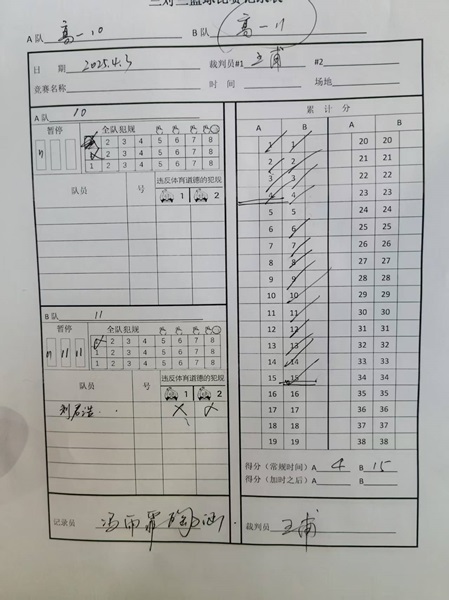 三对三篮球比赛记录表
A 队 高一10 B 队 高一11
日 期 2025.4.3 裁判员#1 王甫 #2
竞赛名称 时 间 场地
A 队 10
暂停 全队犯规
1 2 3 4 5 6 7 8
1 2 3 4 5 6 7 8
1 2 3 4 5 6 7 8
队员 号 违反体育道德的犯规
1 2
B 队 11
暂停 全队犯规
1 2 3 4 5 6 7 8
1 2 3 4 5 6 7 8
1 2 3 4 5 6 7 8
队员 号 违反体育道德的犯规
1 2
累 计 分
A B A B
1 1 20 20
2 2 21 21
3 3 22 22
4 4 23 23
5 5 24 24
6 6 25 25
7 7 26 26
8 8 27 27
9 9 28 28
10 10 29 29
11 11 30 30
12 12 31 31
13 13 32 32
14 14 33 33
15 15 34 34
16 16 35 35
17 17 36 36
18 18 37 37
19 19 38 38
得分（常规时间）A 4 B 15
得分（加时之后）A B
记录员
裁判员 王甫